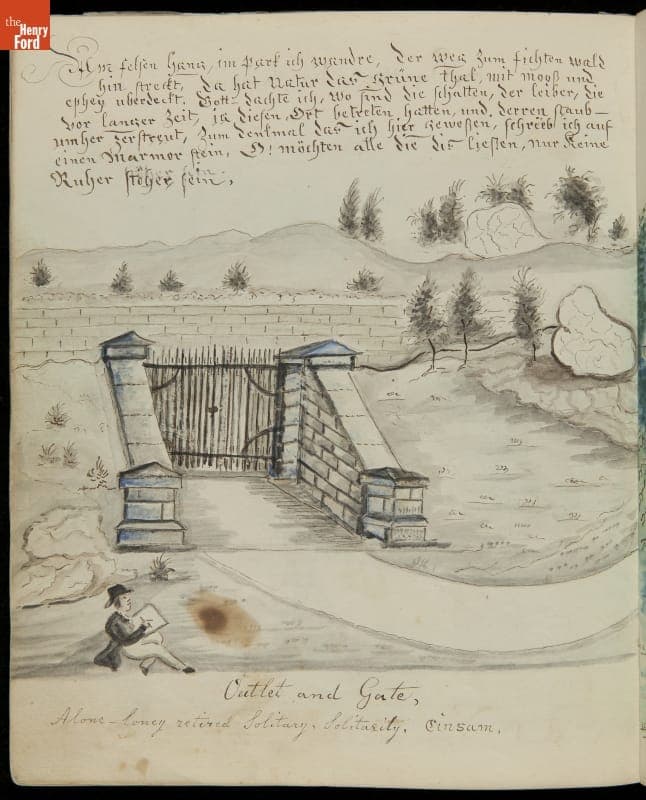 the
Henry
Ford
Am felsen Hang, im Park ich wandre, Der weg zum fichten wald
hin streckt, Da hat Natur das Grüne Thal, mit mooß und
ephey uberdeckt. Gott dachte ich, wo sind die schatten, der leiber, die
vor langer Zeit, ja diesen Ort betreten hatten, und, derren staub
umher zerstreut, Zum denkmal das ich hier gewesßen, schrieb ich auf
einen Marmor stein, O! möchten alle die dis ließen, nur Keine
Ruher stöher sein,
Outlet and Gate,
Alone - Loney retired Solitary. Solitarily, Einsam.